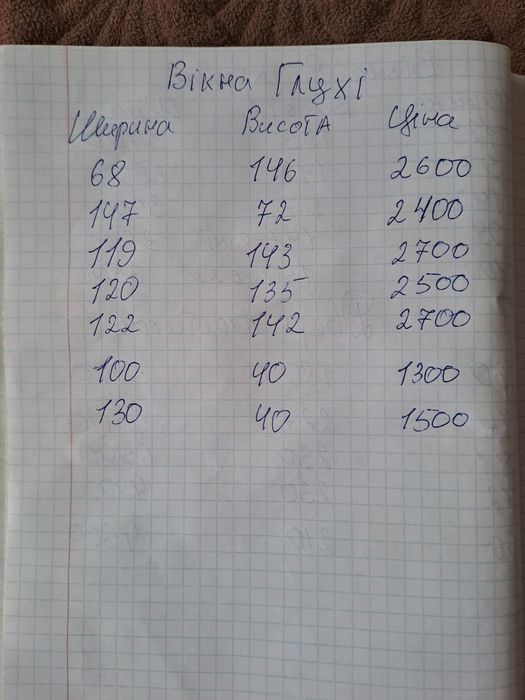 Вікна Глухі
Ширина Висота Ціна
68 146 2600
147 72 2400
119 143 2700
120 135 2500
122 142 2700
100 40 1300
130 40 1500